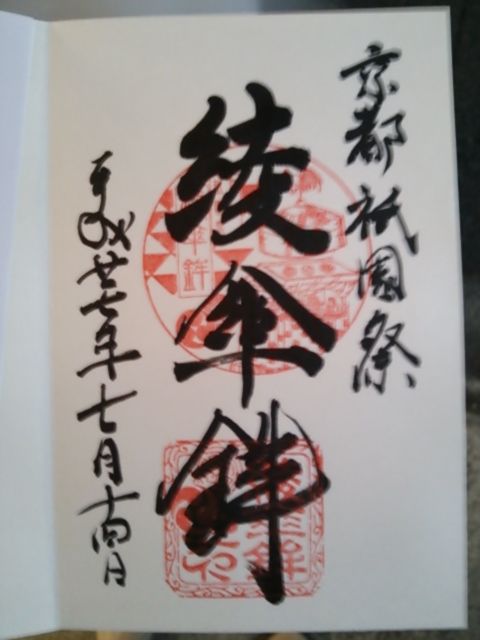 京都祇園祭
綾傘鉾
平成廿七年七月十四日